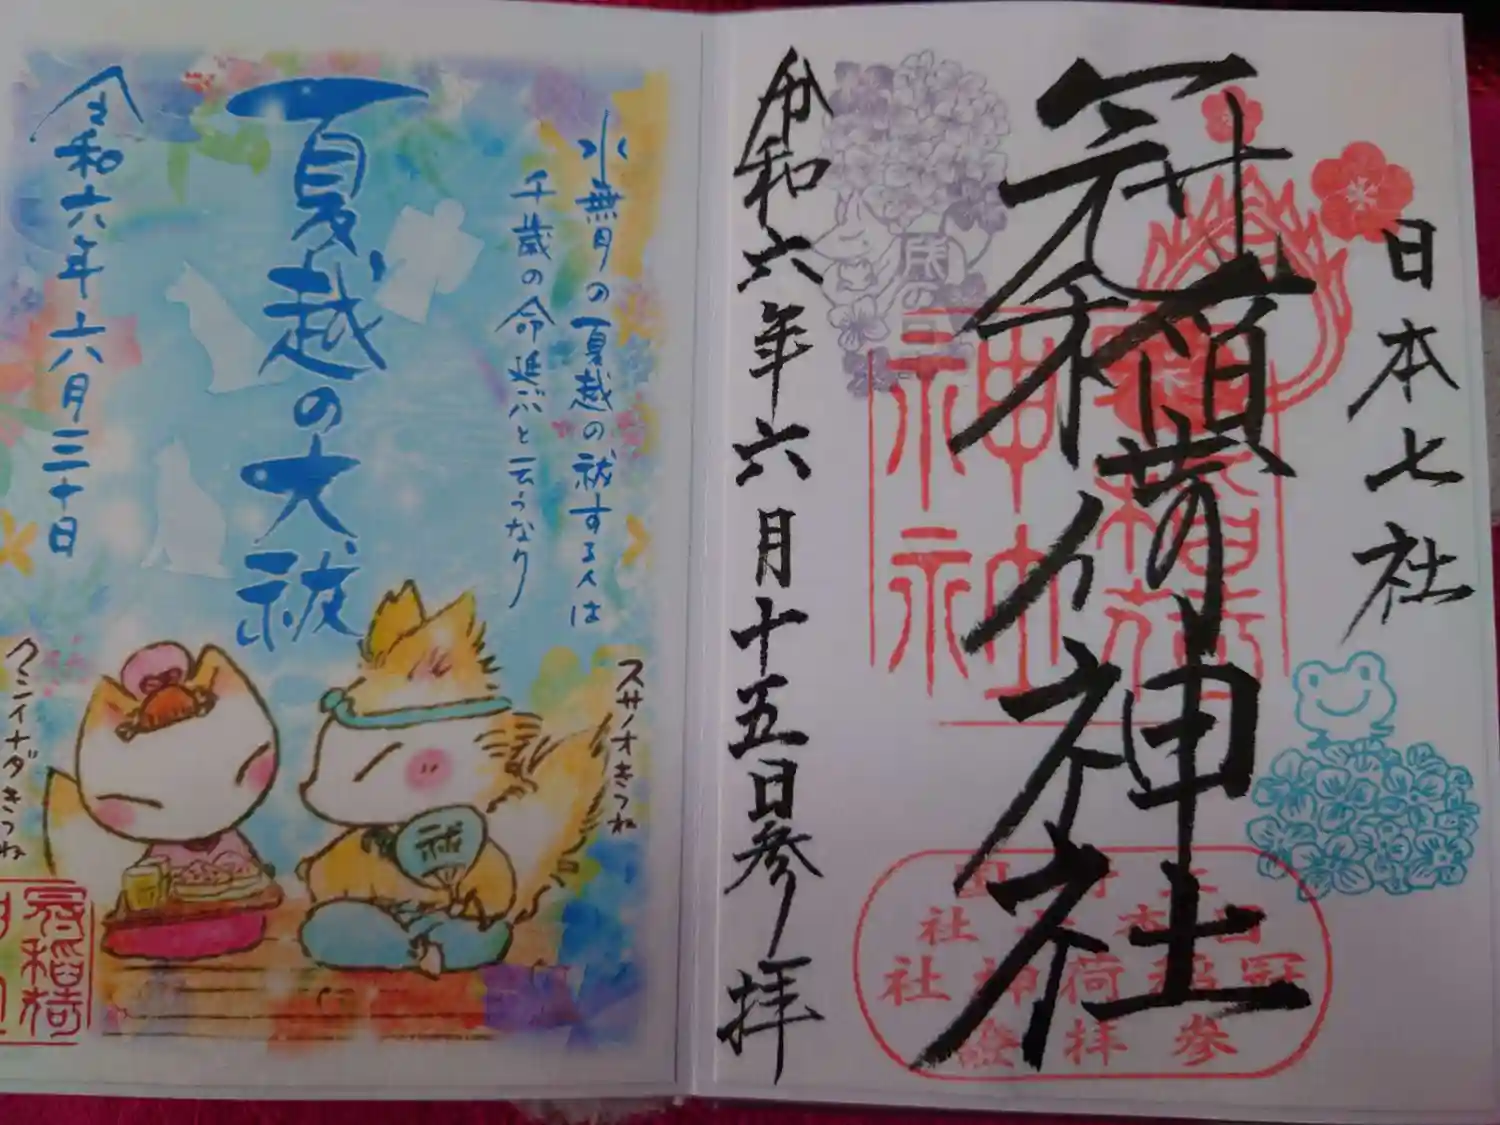 日本七社
冠稲荷神社
令和六年六月十五日参拝
冠稲荷
神社
戌の日
上野国
日本七社
冠稲荷神社
参拝證
水無月の夏越の祓する人は
千歳の命延ぶと云うなり
夏越の大祓
令和六年六月三十日
スサノオきつね
祓
クシイナダきつね
冠稲荷